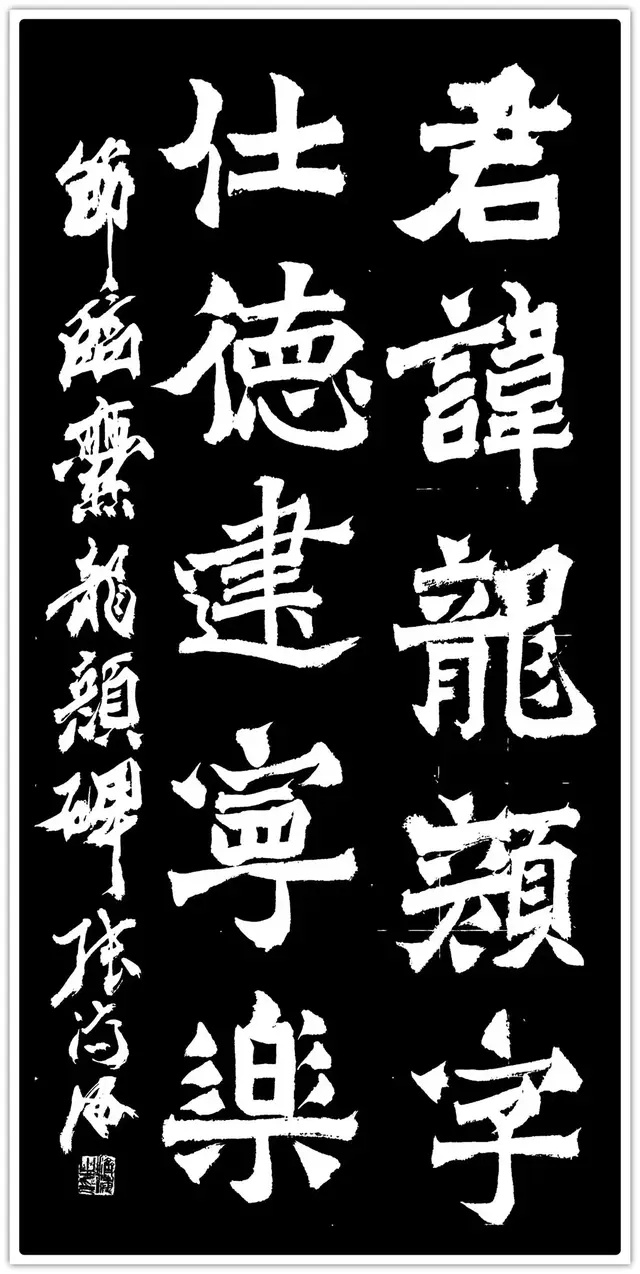 君諱龍顏字
仕德建寧樂
節臨爨龍顏碑張海